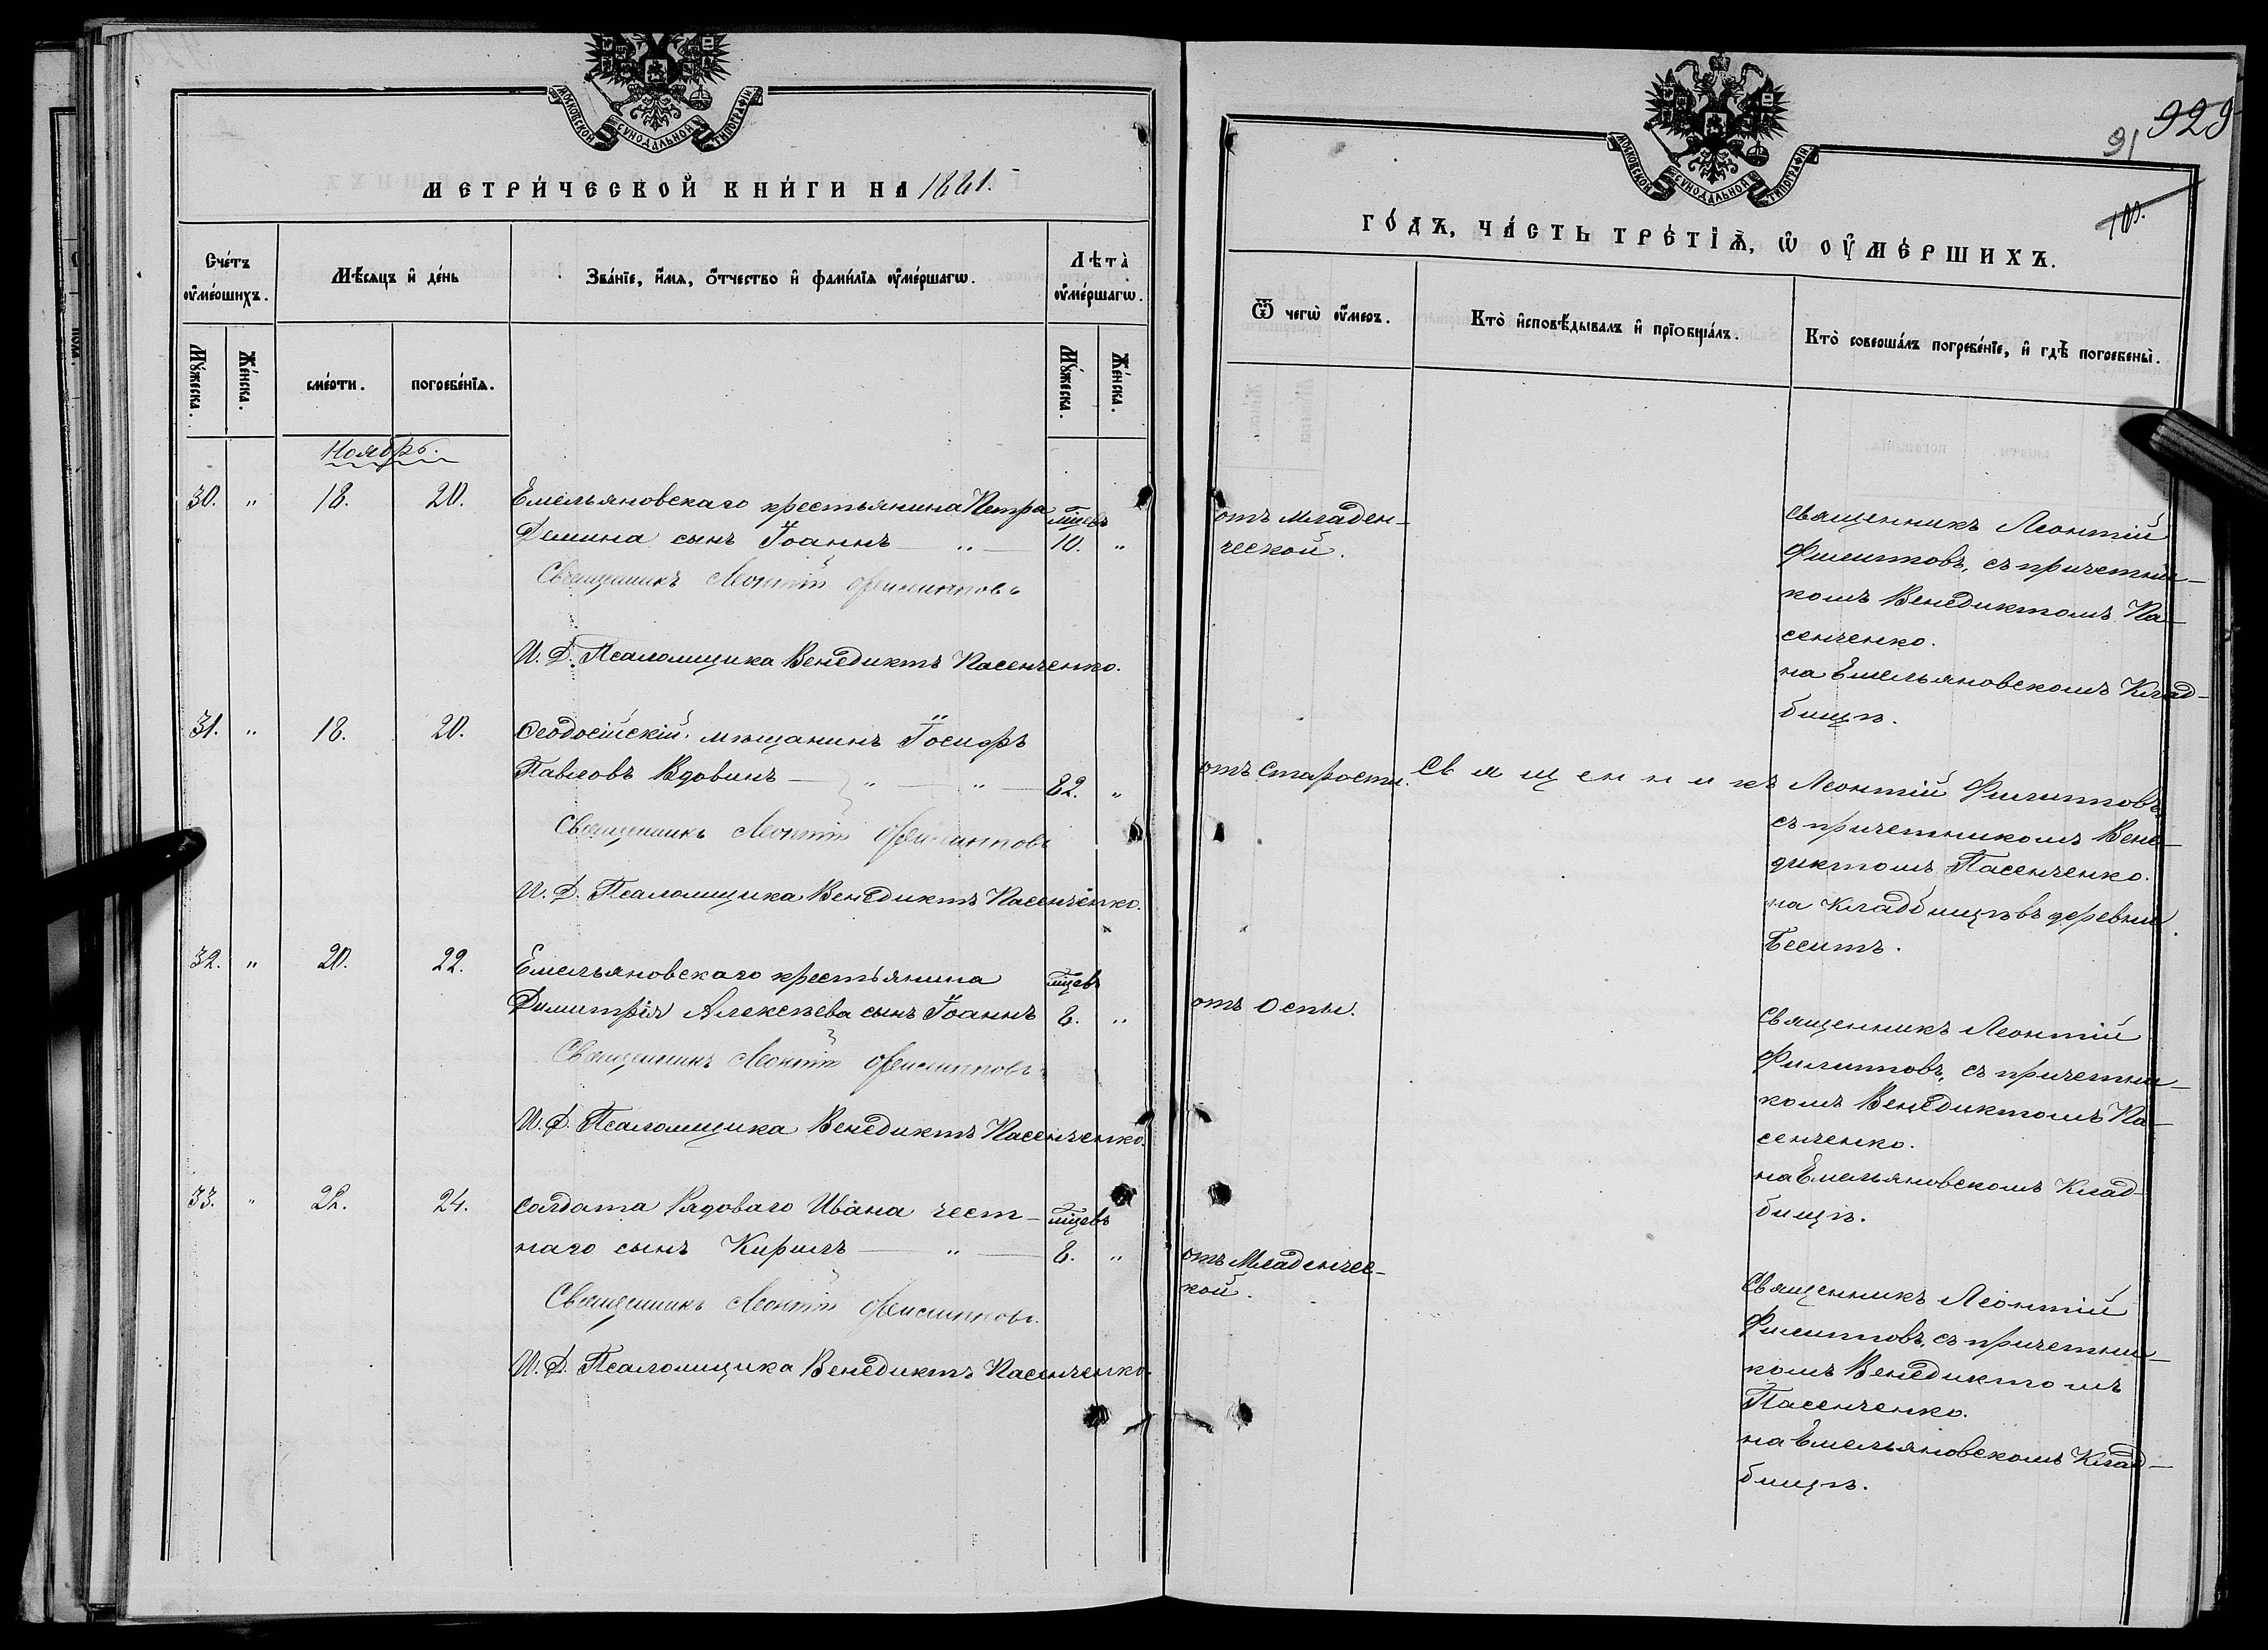 МОСКОВСКОЙ СѴНОДАЛЬНОЙ ТИПОГРАФІИ.
МЕТРИ́ЧЕСКОЙ КНИ́ГИ НА 1881.
Сче́тъ ᲂу҆ме́ршихъ.
Мѣ́сяцъ и҆ де́нь
Зва́нїе, и҆́мѧ, ѻ҆́тчество и҆ фами́лїѧ ᲂу҆ме́ршагѡ.
Лѣ́та ᲂу҆ме́ршагѡ.
Мꙋ́жеска.
Же́нска.
сме́рти.
погребе́нїѧ.
Мꙋ́жеска.
Же́нска.
Ноябрь.
30. " 18. 20. Емельяновскаго крестьянина Петра мѣцевъ
Демина сынъ Іоаннъ — " — 10. "
Священникъ Леонтій Филипповъ
И. Д. Псаломщика Венедиктъ Пасенченко.
31. " 18. 20. Ѳеодосійскій мѣщанинъ Іосифъ
Павловъ Вдовинъ — " — " — 82. "
Священникъ Леонтій Филипповъ
И. Д. Псаломщика Венедиктъ Пасенченко.
32. " 20. 22. Емельяновскаго крестьянина мѣцевъ
Димитрія Алексѣева сынъ Іоаннъ 8. "
Священникъ Леонтій Филипповъ
И. Д. Псаломщика Венедиктъ Пасенченко.
33. " 22. 24. Солдата Рядоваго Ивана чест- мѣцевъ
наго сынъ Кирилъ — " — 8. "
Священникъ Леонтій Филипповъ.
И. Д. Псаломщика Венедиктъ Пасенченко.
929
91
МОСКОВСКОЙ СѴНОДАЛЬНОЙ ТИПОГРАФІИ.
ГО́ДЪ, ЧА́СТЬ ТРЕ́ТЇѦ, Ѡ҆ ОУ҆МЕ́РШИХЪ.
Ѿ чегѡ̀ ᲂу҆́меръ.
Кто̀ и҆сповѣ́дывалъ и҆ прїѻбща́лъ.
Кто̀ соверша́лъ погребе́нїе, и҆ гдѣ̀ погребены̀.
отъ младен-
ческой.
Священникъ Леонтій
Филипповъ, съ причетни-
комъ Венедиктомъ Па-
сенченко.
на Емельяновскомъ Клад-
бищѣ.
отъ Старости. Священникъ Леонтій Филипповъ
съ причетникомъ Вене-
диктомъ Пасенченко.
на Кладбищѣ въ деревни
отъ Оспы.
Священникъ Леонтій
Филипповъ, съ причетни-
комъ Венедиктомъ Па-
сенченко.
на Емельяновскомъ Клад-
бищѣ.
отъ Младенчес-
кой.
Священникъ Леонтій
Филипповъ, съ причетни-
комъ Венедиктомъ
Пасенченко.
на Емельяновскомъ Клад-
бищѣ.